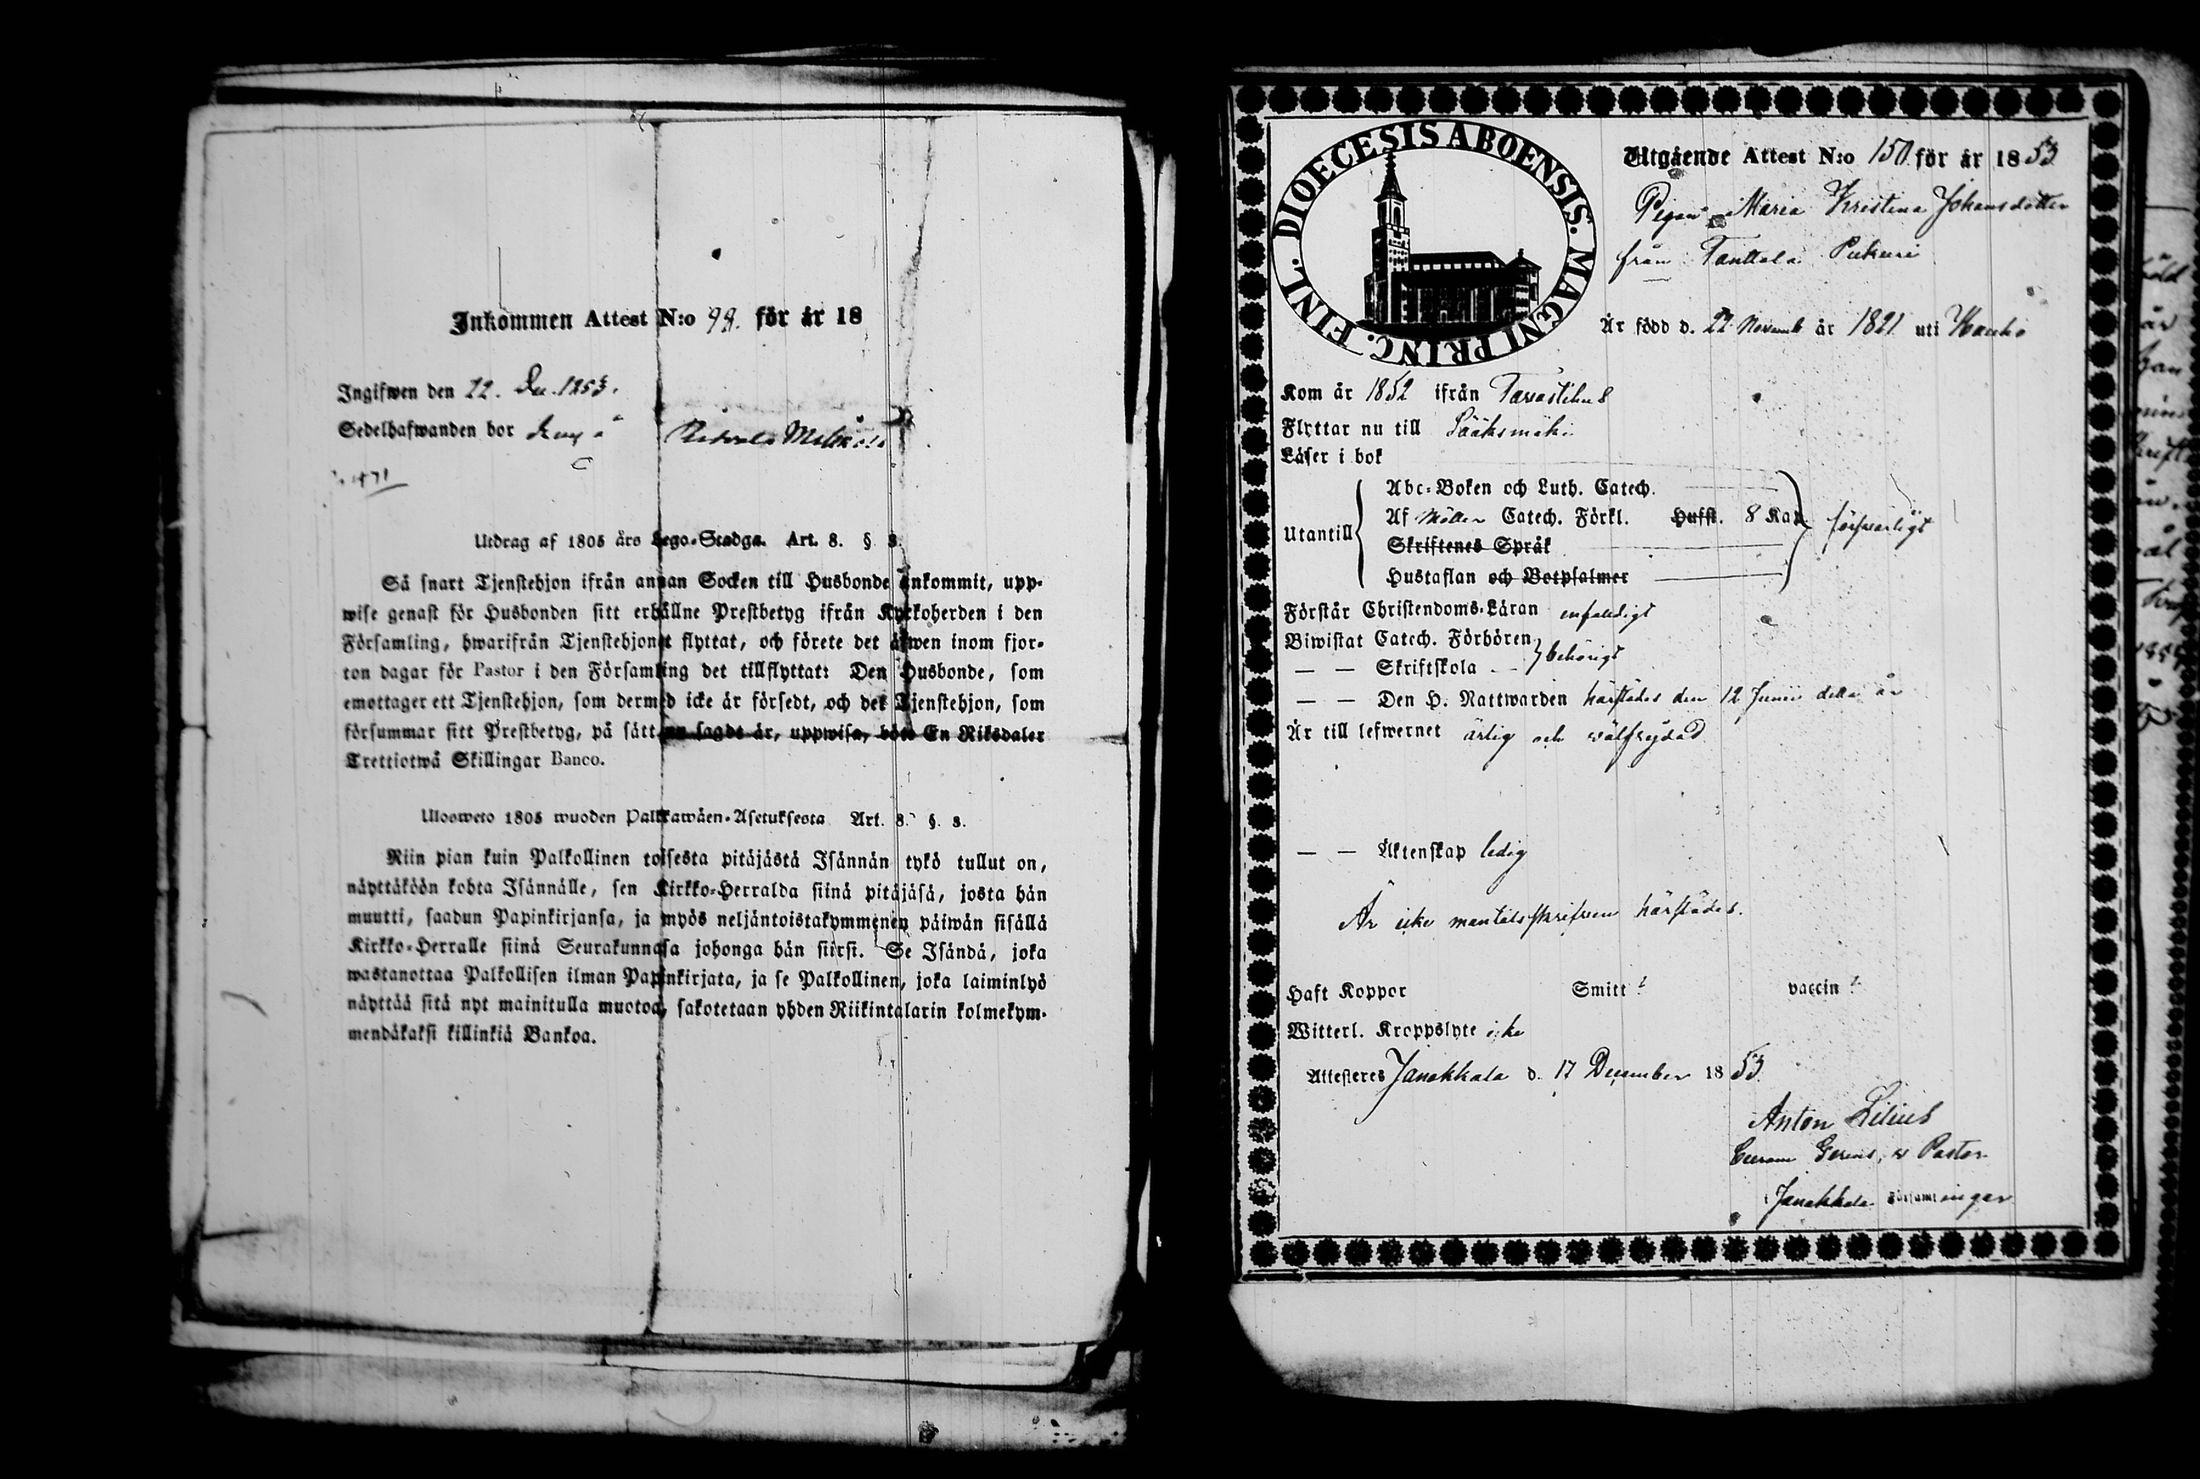 Inkommen Attest N:o 99. för år 18
Ingifwen den 22. Dec. 1853.
Sedelhafwanden bor
Utdrag af 1805 års Lego-Stadga. Art. 8. §. 8.
Så snart Tjenstehjon ifrån annan Socken till Husbonde ankommit, upp-
wise genast för Husbonden sitt erhållne Prestbetyg ifrån Kyrkoherden i den
Församling, hwarifrån Tjenstehjonet flyttat, och förete det äfwen inom fjor-
ton dagar för Pastor i den Församling det tillflyttat: Den Husbonde, som
emottager ett Tjenstehjon, som dermed icke är försedt, och det Tjenstehjon, som
försummar sitt Prestbetyg, på sätt nu sagdt är, uppwisa, böte En Riksdaler
Trettiotwå Skillingar Banco.
Ulosweto 1805 wuoden Palkkawäen-Asetuksesta Art. 8. §. 8.
Niin pian kuin Palkollinen toisesta pitäjästä Isännän tykö tullut on,
näyttäköön kohta Isännälle, sen Kirkko-Herralda siinä pitäjäsä, josta hän
muutti, saadun Papinkirjansa, ja myös neljäntoistakymmenen päiwän sisällä
Kirkko-Herralle siinä Seurakunnasa johonga hän siirsi. Se Isändä, joka
wastanottaa Palkollisen ilman Papinkirjata, ja se Palkollinen, joka laiminlyö
näyttää sitä nyt mainitulla muotoa, sakotetaan yhden Riikintalarin kolmekym-
mendäkaksi killinkiä Bankoa.
DIOECESIS ABOENSIS. MAGNI PRINC. FINL.
Utgående Attest N:o 150 för år 1853
Pigan Maria Kristina Johansdotter
från Tanttala Pukuri
Är född d. 22 Novemb år 1821 uti Hauho
Kom år 1852 ifrån Tavastehus
Flyttar nu till Sääksmäki
Läser i bok
Utantill
Abc-Boken och Luth. Catech.
Af Möller Catech. Förkl. Hufst. 8 Kap. försvarligt
Skriftenes Språk
Hustaflan och Botpsalmer
Förstår Christendoms-Läran enfaldigt
Biwistat Catech. Förhören
— — Skriftskola - - behörigt
— — Den H. Nattwarden härstädes den 12 Junii detta år
Är till lefwernet ärlig och wälfrejdad
— — Äktenskap ledig
Är icke mantalsskrifven härstädes.
Haft Koppor Smitt ? vaccin ?
Witterl. Kroppslyte icke
Attesteres Janakkala d. 17 December 1853
Anton Lilius
Curam Gerens, v Pastor
i Janakkala Församlingar